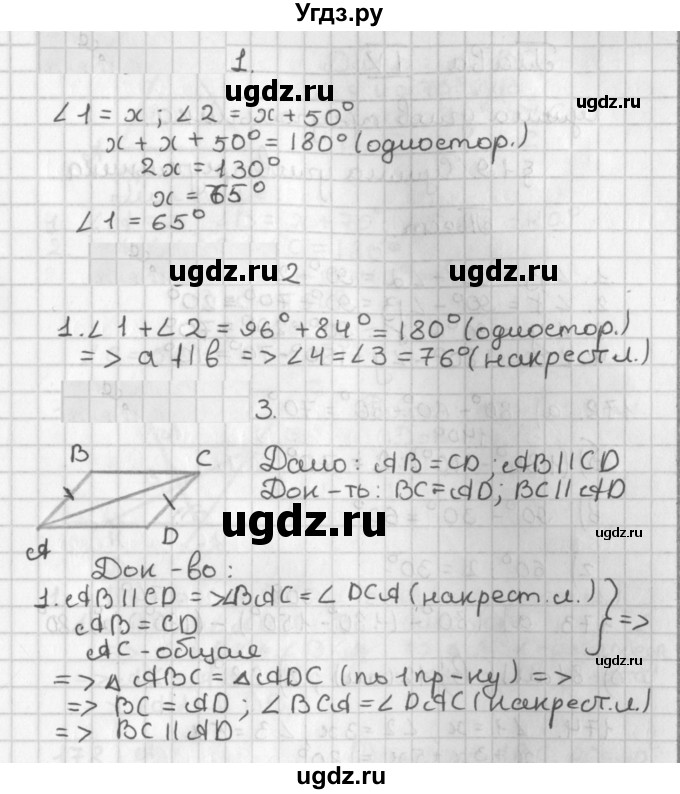 Угдз.ру
1.
ugdz.ru
ugdz.ru
∠1 = x ; ∠2 = x + 50°
x + x + 50° = 180° (одностор.)
2x = 130°
x = 65°
∠1 = 65°
ugdz.ru 2 ugdz.ru
1. ∠1 + ∠2 = 96° + 84° = 180° (одностор.)
=> a || b => ∠4 = ∠3 = 76° (накрест л.)
3.
B C
Дано: AB = CD ; AB || CD
Док-ть: BC = AD; BC || AD
ugdz.ru
ugdz.ru
A D
Док-во:
1. AB || CD => ∠BAC = ∠DCA (накрест. л.) } =>
AB = CD
AC - общая
=> △ ABC = △ ADC (по 1 пр-ку) =>
=> BC = AD ; ∠BCA = ∠DAC (накрест. л.)
=> BC || AD
ugdz.ru
ugdz.ru
ugdz.ru